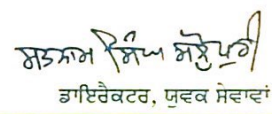 ਸਤਨਾਮ ਸਿੰਘ
ਡਾਇਰੈਕਟਰ, ਯੁਵਕ ਸੇਵਾਵਾਂ